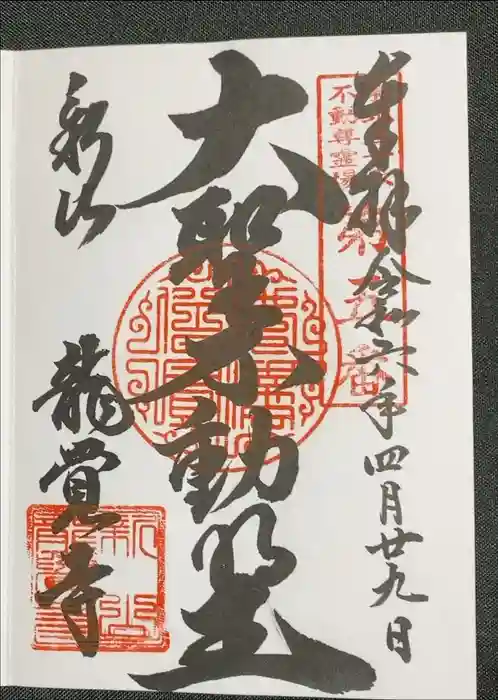 奉拝 令和六年四月廿九日
不動尊霊場
大聖不動明王
新山
龍覚寺